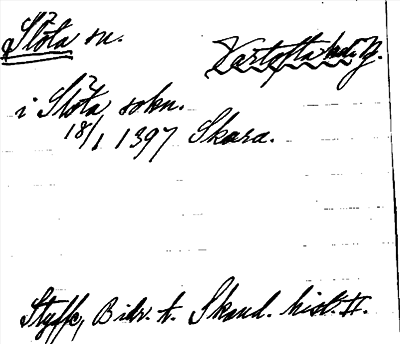 Slöta sn. Vartofta hd. Vg.
i Slöta sokn.
18/1 1397 Skara.
Styffe, Bidr. t. Skand. hist. II.